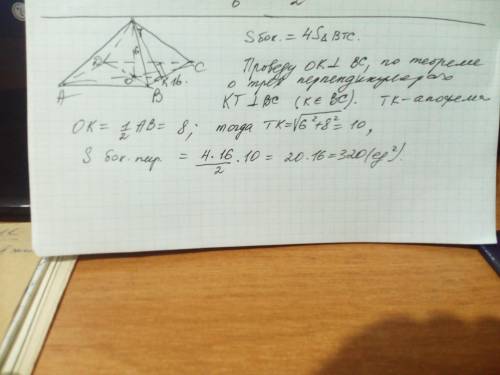 6 2
S бок. = 4S△BTC.
Проведу OK⊥BC, по теореме
о трех перпендикулярах
KT⊥BC (K∈BC). TK-апофема
OK = 1/2 AB = 8; тогда TK=√6²+8² = 10,
S бок. пир. = 4·16/2 · 10 = 20·16=320(ед²).
6
D
O
C
K
16.
A
B